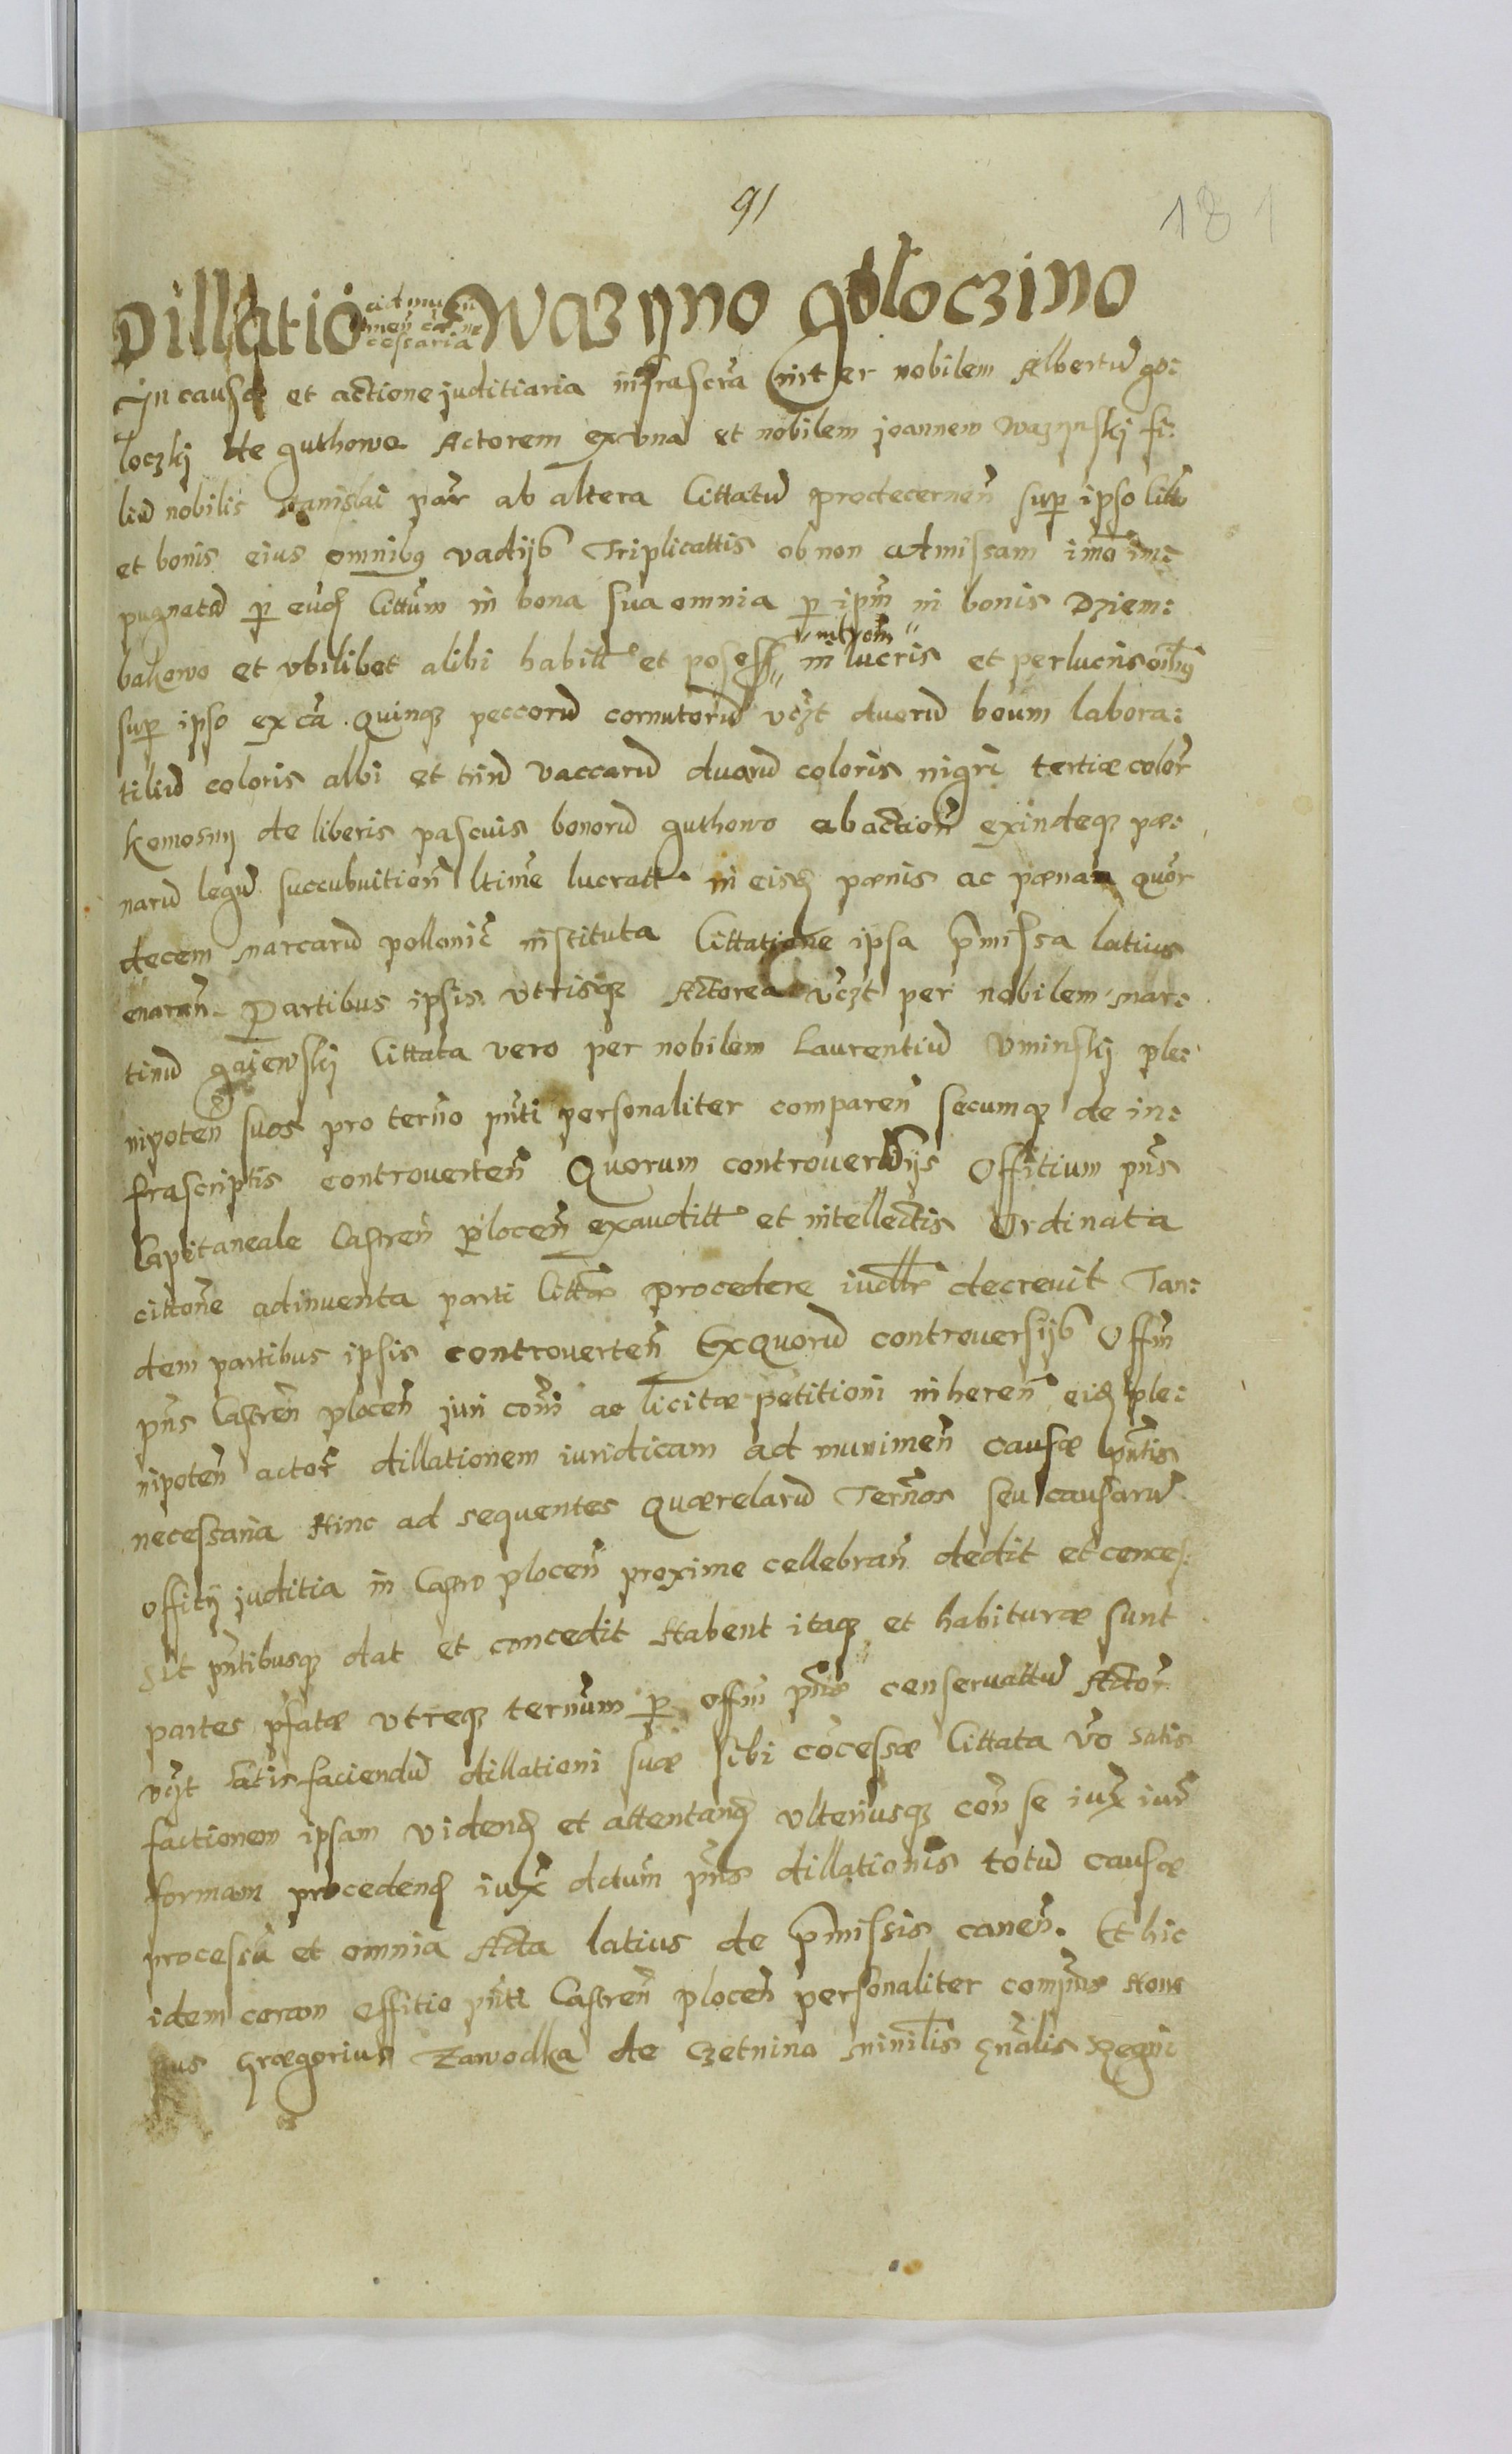 91
181
Dillatio ad muni
men cæ ne
cessaria Wazÿno goloczino
In causa et actione juditiaria infrascrã inter nobilem Albertũ go:
loczkj de guthowo Actorem ex vna et nobilem joannem Wazÿnskj fi:
liũ nobilis Stanislai par̃ ab altera Cittatũ pro decernen̄ sup ipso Citto
et bonis eius omnibus vadijs Triplicattis ob non admissam imõ im:
pugnatã p euñd Cittum in bona sua omnia p ipm̃ in bonis Dziem:
bakowo et vbilibet alibi habitt et possess in lucris et perlucris oĩbus
sup ipso ex cã quinqz peccorũ cornutorũ vczt duorũ boum labora:
tiliũ coloris albi et triũ vaccarũ duarũ coloris nigri tertiæ color̃
komosny de liberis pascuis bonorũ guthowo abaction̄ exindeqz pæ:
narũ legũ succubuition̄ ltime lucratt in eisd pænis ac pænarũ quor
decem marcarũ pollonic̃ instituta Cittatione ipsa p̃missa latius
enarran̄. Partibus ipsis vtrisqz Actorea vczt per nobilem mar:
tinũ gaiewskj Cittata vero per nobilem Laurentiũ Vminskj ple:
nipoten̄ suos pro termo pñti personaliter comparen̄ secumqz de in:
frascriptis controverten̄ Quorum controversijs Offitium pñs
Capitaneale Castren̄ plocen̄ exauditt et intellectis Ordinata
cittone adinventa parti Cittæ procedere iudtr̃ decrevit Tan:
dem partibus ipsis controverten̄ Ex Quorũ controversijs Offm̃
pñs Castren̄ plocen̄ juri com̃i ac licitæ petitioni inheren̄ eid ple:
nipoten̄ actor̃ dillationem iuridicam ad munimen̄ causæ pñtis
necessaria Hinc ad sequentes Quærelarũ Term̃os seu causarũ
Offitij juditia in Castro plocen̄ proxime cellebran̄ dedit et conces:
sit pñtibusqz dat et concedit Habent itaqz et habituræ sunt
partes pfatæ vtreqz termum p offm̃ pñs conservattũ Actor̃
vczt satisfaciendũ dillationi suæ sibi cõcessæ Cittata võ satis
factionem ipsam videnđ et attentanđ vlteriusqz con̄ se iux̃ iur̃
formam procedenđ iux̃ dctum pñs dillationis totũ causæ
processũ et omnia Acta latius de p̃missis canen̄. Et hic
idem coram offitio pñti Castren̄ plocen̄ personaliter compñs Hones
tus Græegorius Zawodka de Czetnino minilis gñalis Regni